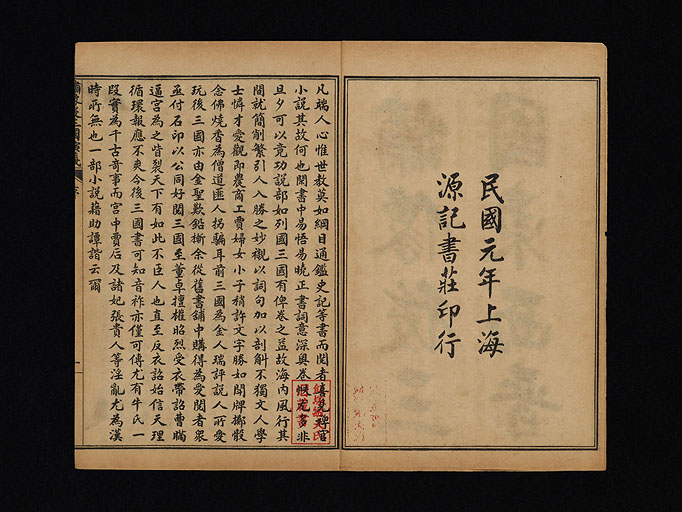 民國元年上海
源記書莊印行
凡端人心惟世教莫如綱目通鑑史記等書而閱者喜見稗官
小說其故何也閑書中易悟易曉正書詞意深奧卷帙尤多非
旦夕可以竟功說部如列國三國有俾卷之益故海內風行其
間就簡削繁引人入勝之妙襯以詞句加以剖斷不獨文人學
士憐才愛觀即農商工賈婦女小子稍許文字勝如鬪牌擲骰
念佛燒香為僧道匪人拐騙耳前三國為金人瑞評說人所愛
玩後三國亦由金聖歎鉛槧余從舊書舖中購得為愛閱者衆
亟付石印以公同好閱三國至董卓擅權昭烈受衣帶詔曹瞞
逼宮為之眥裂天下有如此不臣人也直至反衣詔始信天理
循環報應不爽今後三國書可知音祚亦僅可傳尤有牛氏一
段實為千古奇事而宮中賈后及諸妃張貴人等淫亂尤為漢
時所無也一部小說藉助譚諧云爾
序